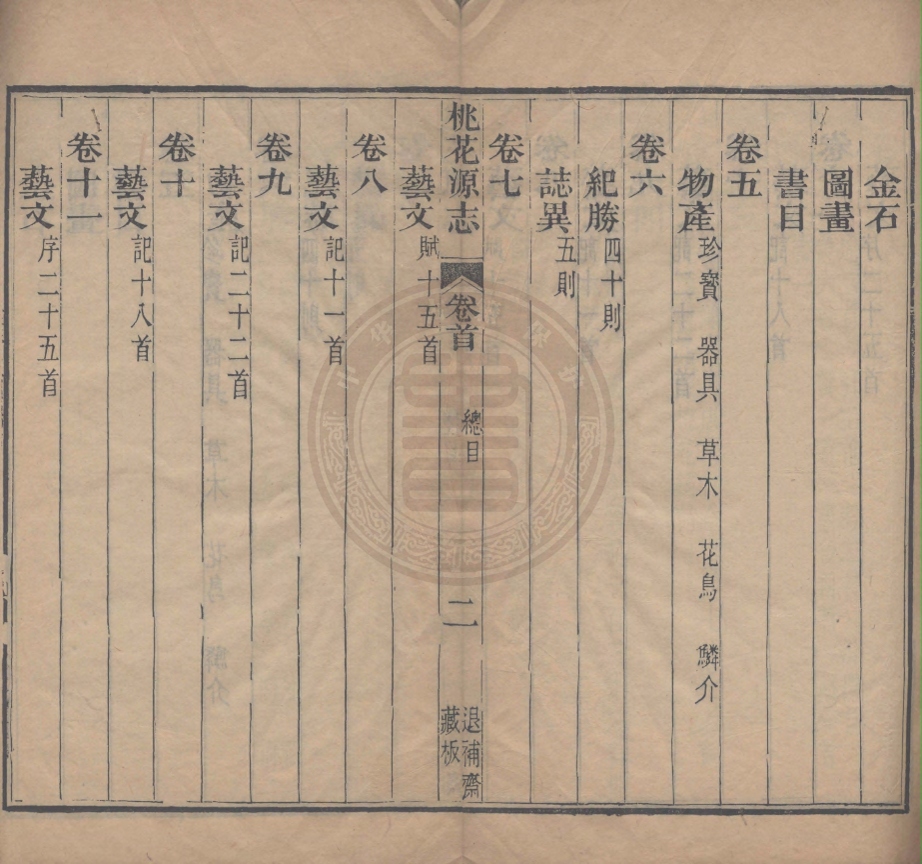 金石
圖畫
書目
卷五
物產 珍寶 器具 草木 花鳥 鱗介
卷六
紀勝 四十則
誌異 五則
卷七
桃花源志 卷首 總目 二 退補齋藏板
藝文 賦十五首
卷八
藝文 記十一首
卷九
藝文 記二十二首
卷十
藝文 記十八首
卷十一
藝文 序二十五首